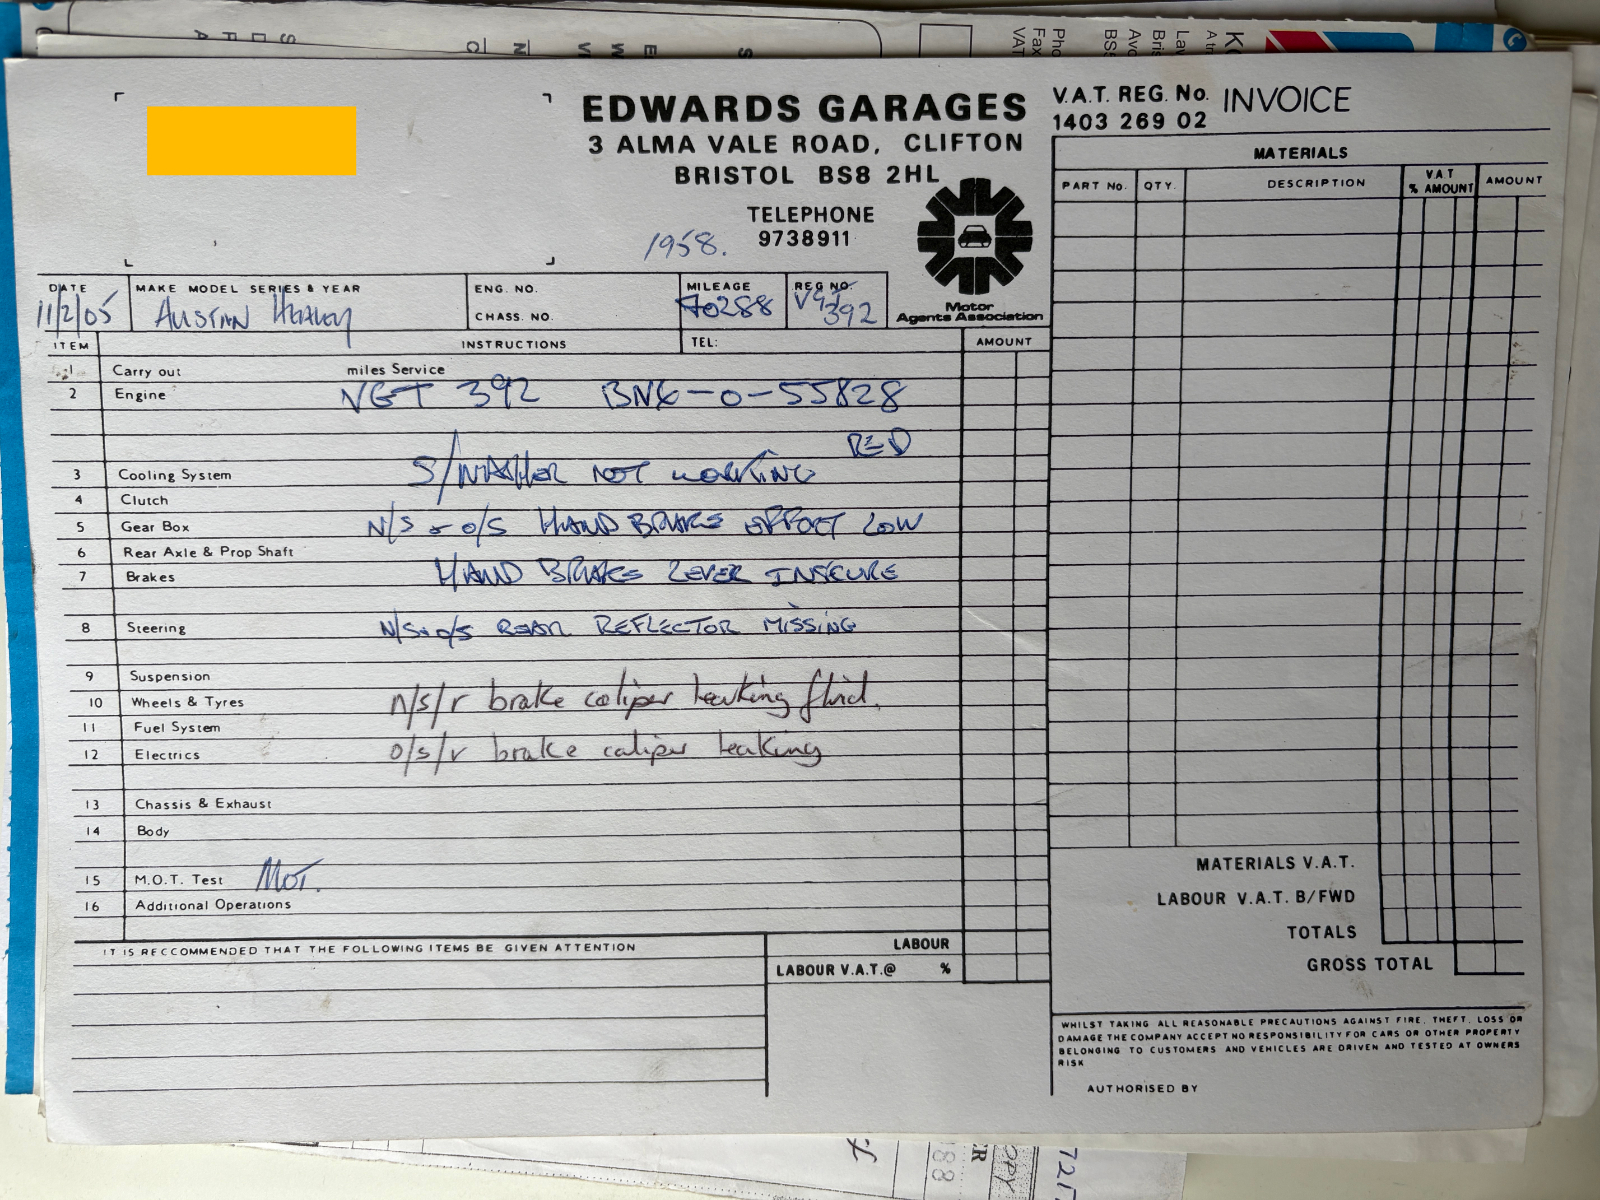 EDWARDS GARAGES
3 ALMA VALE ROAD, CLIFTON
BRISTOL BS8 2HL
TELEPHONE
9738911
1958.
Motor
Agents Association
V.A.T. REG. No.
1403 269 02
INVOICE
DATE
11/2/05
MAKE MODEL SERIES & YEAR
AUSTIN HEALEY
ENG. NO.
CHASS. NO.
MILEAGE
70288
REG NO.
VGT
392
ITEM
INSTRUCTIONS
TEL:
AMOUNT
1 Carry out miles Service
2 Engine VGT 392 BN6-0-55828
RED
3 Cooling System S/WASHER NOT WORKING
4 Clutch
5 Gear Box N/S & O/S HAND BRAKE EFFORT LOW
6 Rear Axle & Prop Shaft
7 Brakes HAND BRAKE LEVER INSECURE
8 Steering N/S & O/S REAR REFLECTOR MISSING
9 Suspension
10 Wheels & Tyres n/s/r brake caliper leaking fluid.
11 Fuel System
12 Electrics o/s/r brake caliper leaking
13 Chassis & Exhaust
14 Body
15 M.O.T. Test MOT.
16 Additional Operations
IT IS RECCOMMENDED THAT THE FOLLOWING ITEMS BE GIVEN ATTENTION
LABOUR
LABOUR V.A.T.@ %
MATERIALS
PART No. QTY. DESCRIPTION V.A.T % AMOUNT AMOUNT
MATERIALS V.A.T.
LABOUR V.A.T. B/FWD
TOTALS
GROSS TOTAL
WHILST TAKING ALL REASONABLE PRECAUTIONS AGAINST FIRE, THEFT, LOSS OR
DAMAGE THE COMPANY ACCEPT NO RESPONSIBILITY FOR CARS OR OTHER PROPERTY
BELONGING TO CUSTOMERS AND VEHICLES ARE DRIVEN AND TESTED AT OWNERS
RISK
AUTHORISED BY